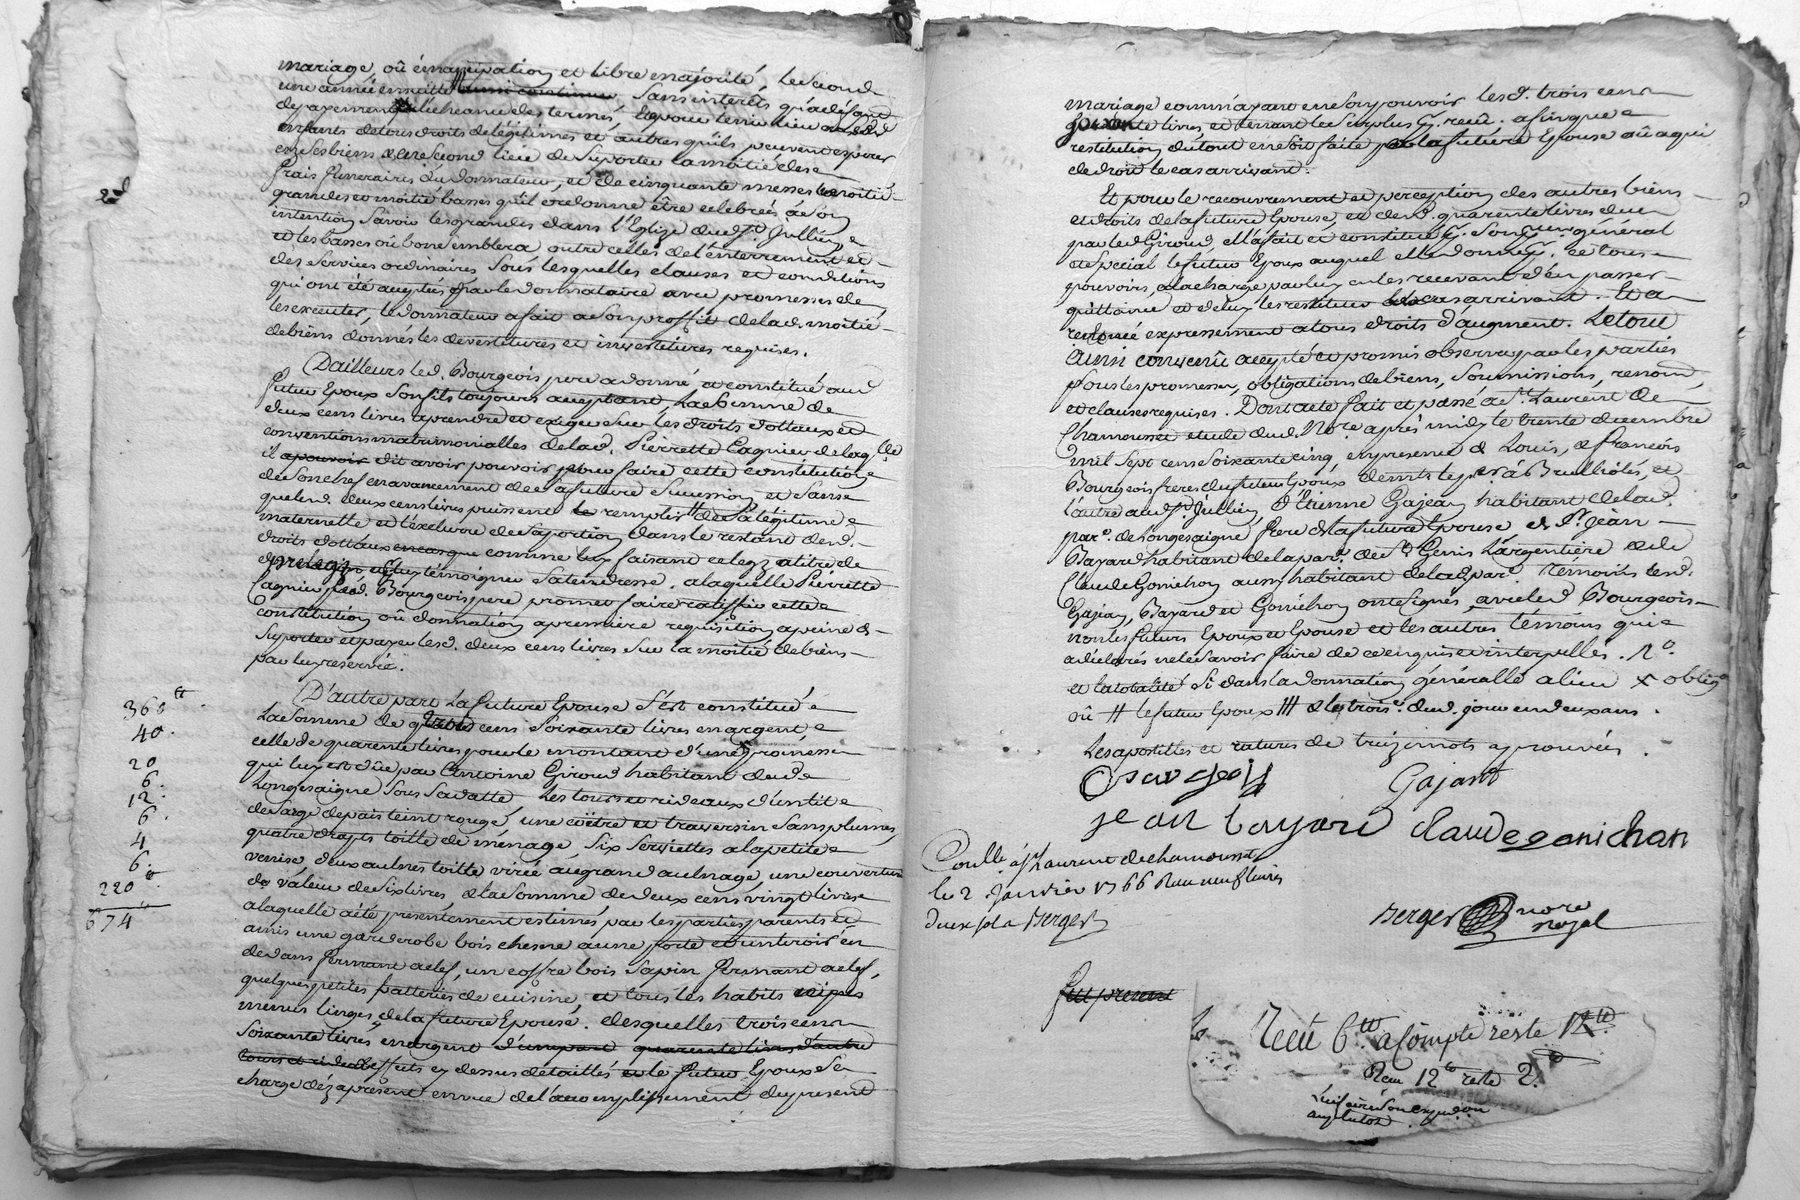 mariage où émancipation et libre majorité, le second
une année ensuitte sans interêts qu'à défaut
de payement à l'echeance des termes, le pour tenir lieu
enfants de tous droits de légitimes et autres qu'ils peuvent esperer
en ses biens de ce second lieu de suporter la moitié des
frais funeraires du donnateur, et de cinquante messes la moitié
grandes et moitié basses qu'il ordonne être celebrées à son
2d
intention savoir les grandes dans l'Eglise dud. St. Jullien
et les basses où bon semblera outre celles de l'enterrement et
des services ordinaires sous lesquelles clauses et conditions
qui ont été acceptées par le donnataire avec promesses de
les executer, le donnateur a fait à son proffit de lad. moitié
de biens donnés les devestitures et investitures requises.
D'ailleurs led. Bourgeois pere a donné et constitué aud.
futur Epoux son fils toujours acceptant, la somme de
deux cens livres à prendre et exiger sur les droits dottaux et
conventions matrimonialles de lad. Pierrette Cagnieu de laqlle
il dit avoir pouvoir pour faire cette constitution
de son chef en avancement de sa future succession et sans
que led. deux cens livres puissent le remplir de sa légitime
maternelle et l'exclure de sa portion dans le restant desd.
droits dottaux comme luy faisant ce legs à titre de
luy témoigner sa tendresse, à laquelle Pierrette
Cagnieu led. Bourgeois pere promet faire ratiffier cette
constitution où donnation à premiere requisition à peine de
suporter et payer lesd. deux cens livres sur la moitié de biens
par luy reservée.
D'autre part la future Epouse s'est constitué
365 tt
la somme de trois cens soixante livres en argent,
40.
celle de quarente livres pour le montant d'une promesse
20
qui luy est düe par Antoine Giroud habitant dud.
6.
Longesaigne sous sa datte les tours et rideaux d'un lit
12.
de sarge de païs teint rouge, une coëtre et traversin sans plumes,
6.
quatre draps toille de ménage, six serviettes à la petite
4
venise, deux aulnes toille virée au grand aulnage, une couverture
6.
de valeur de six livres, et la somme de deux cens vingt livres
220 tt
à laquelle a été presentement estimés par les parties parents et
674
amis une garderobe bois chesne à une porte et un tiroir en
dedans fermant à clef, un coffre bois sapin fermant à clef,
quelques petites batteries de cuisine, et tous les habits nipes
menus linges de la future Epouse. desquelles trois cens
soixante livres en argent d'une part quarente livres d'autre
tours et rideaux effets cy dessus detaillés le futur Epoux se
charge dès à present en vue de l'accomplissement du present
mariage comm'ayant en son pouvoir lesd. trois cens
livres, et tenant le surplus p. reçû. afin que
restitution du tout en soit faite à la future Epouse où à qui
de droit le cas arrivant.
Et pour le recouvrement et perception des autres biens
et droits de la future Epouse, et desd. quarente livres dües
par led. Giroud, ell'a fait et constitué p. son p.eur général
et special le futur Epoux auquel elle donne p. ce tous
pouvoirs, à la charge par luy en les recevant d'en passer
quittance et d'eux les restituer le cas arrivant. Et a
renoncé expressement à tous droits d'augment. Le tout
ainsi convenû accepté et promis observer par les parties
sous les promesses, obligations de biens, soumissions, renonc.
et clauses requises. Dont acte fait et passé à St. Laurent de
Chamousset etude dud. Nore. après midy le trente decembre
mil sept cens soixante cinq, en presence de Louis, & françois
Bourgeois freres du futur Epoux demts. le pr. à Brulliolés, et
l'autre aud. St. Jullien d'Etienne Gajean habitant de lad.
par. de Longesaigne frere de la future Epouse de Sr. jean
Bayard habitant de la par. de St. Genis l'argentière & de
Claude Gonichon aussy habitant de lad. par. temoins lesd.
Gajean, Bayard et Gonichon ont signés avec led. Bourgeois
non les futurs Epoux et Epouse et les autres témoins qui
a déclarés ne le savoir faire de ce enquis et interpellés. No.
et la totalité si dans la donnation généralle a lieu x oblig.
où # le futur Epoux ### dud. jour en deux ans.
Les apostilles et ratures de treize mots aprouvées.
Bourgeois Gajant
jean bayard claude gonichan
Coullé à St. Laurent de chamousset
le 2 Janvier 1766 Reçu neuf livres
deux sols Berger
Berger nore
royal
fut present
Reçû 6 tt. a compte reste 12 tt.
Reçu 12 tt reste 2.